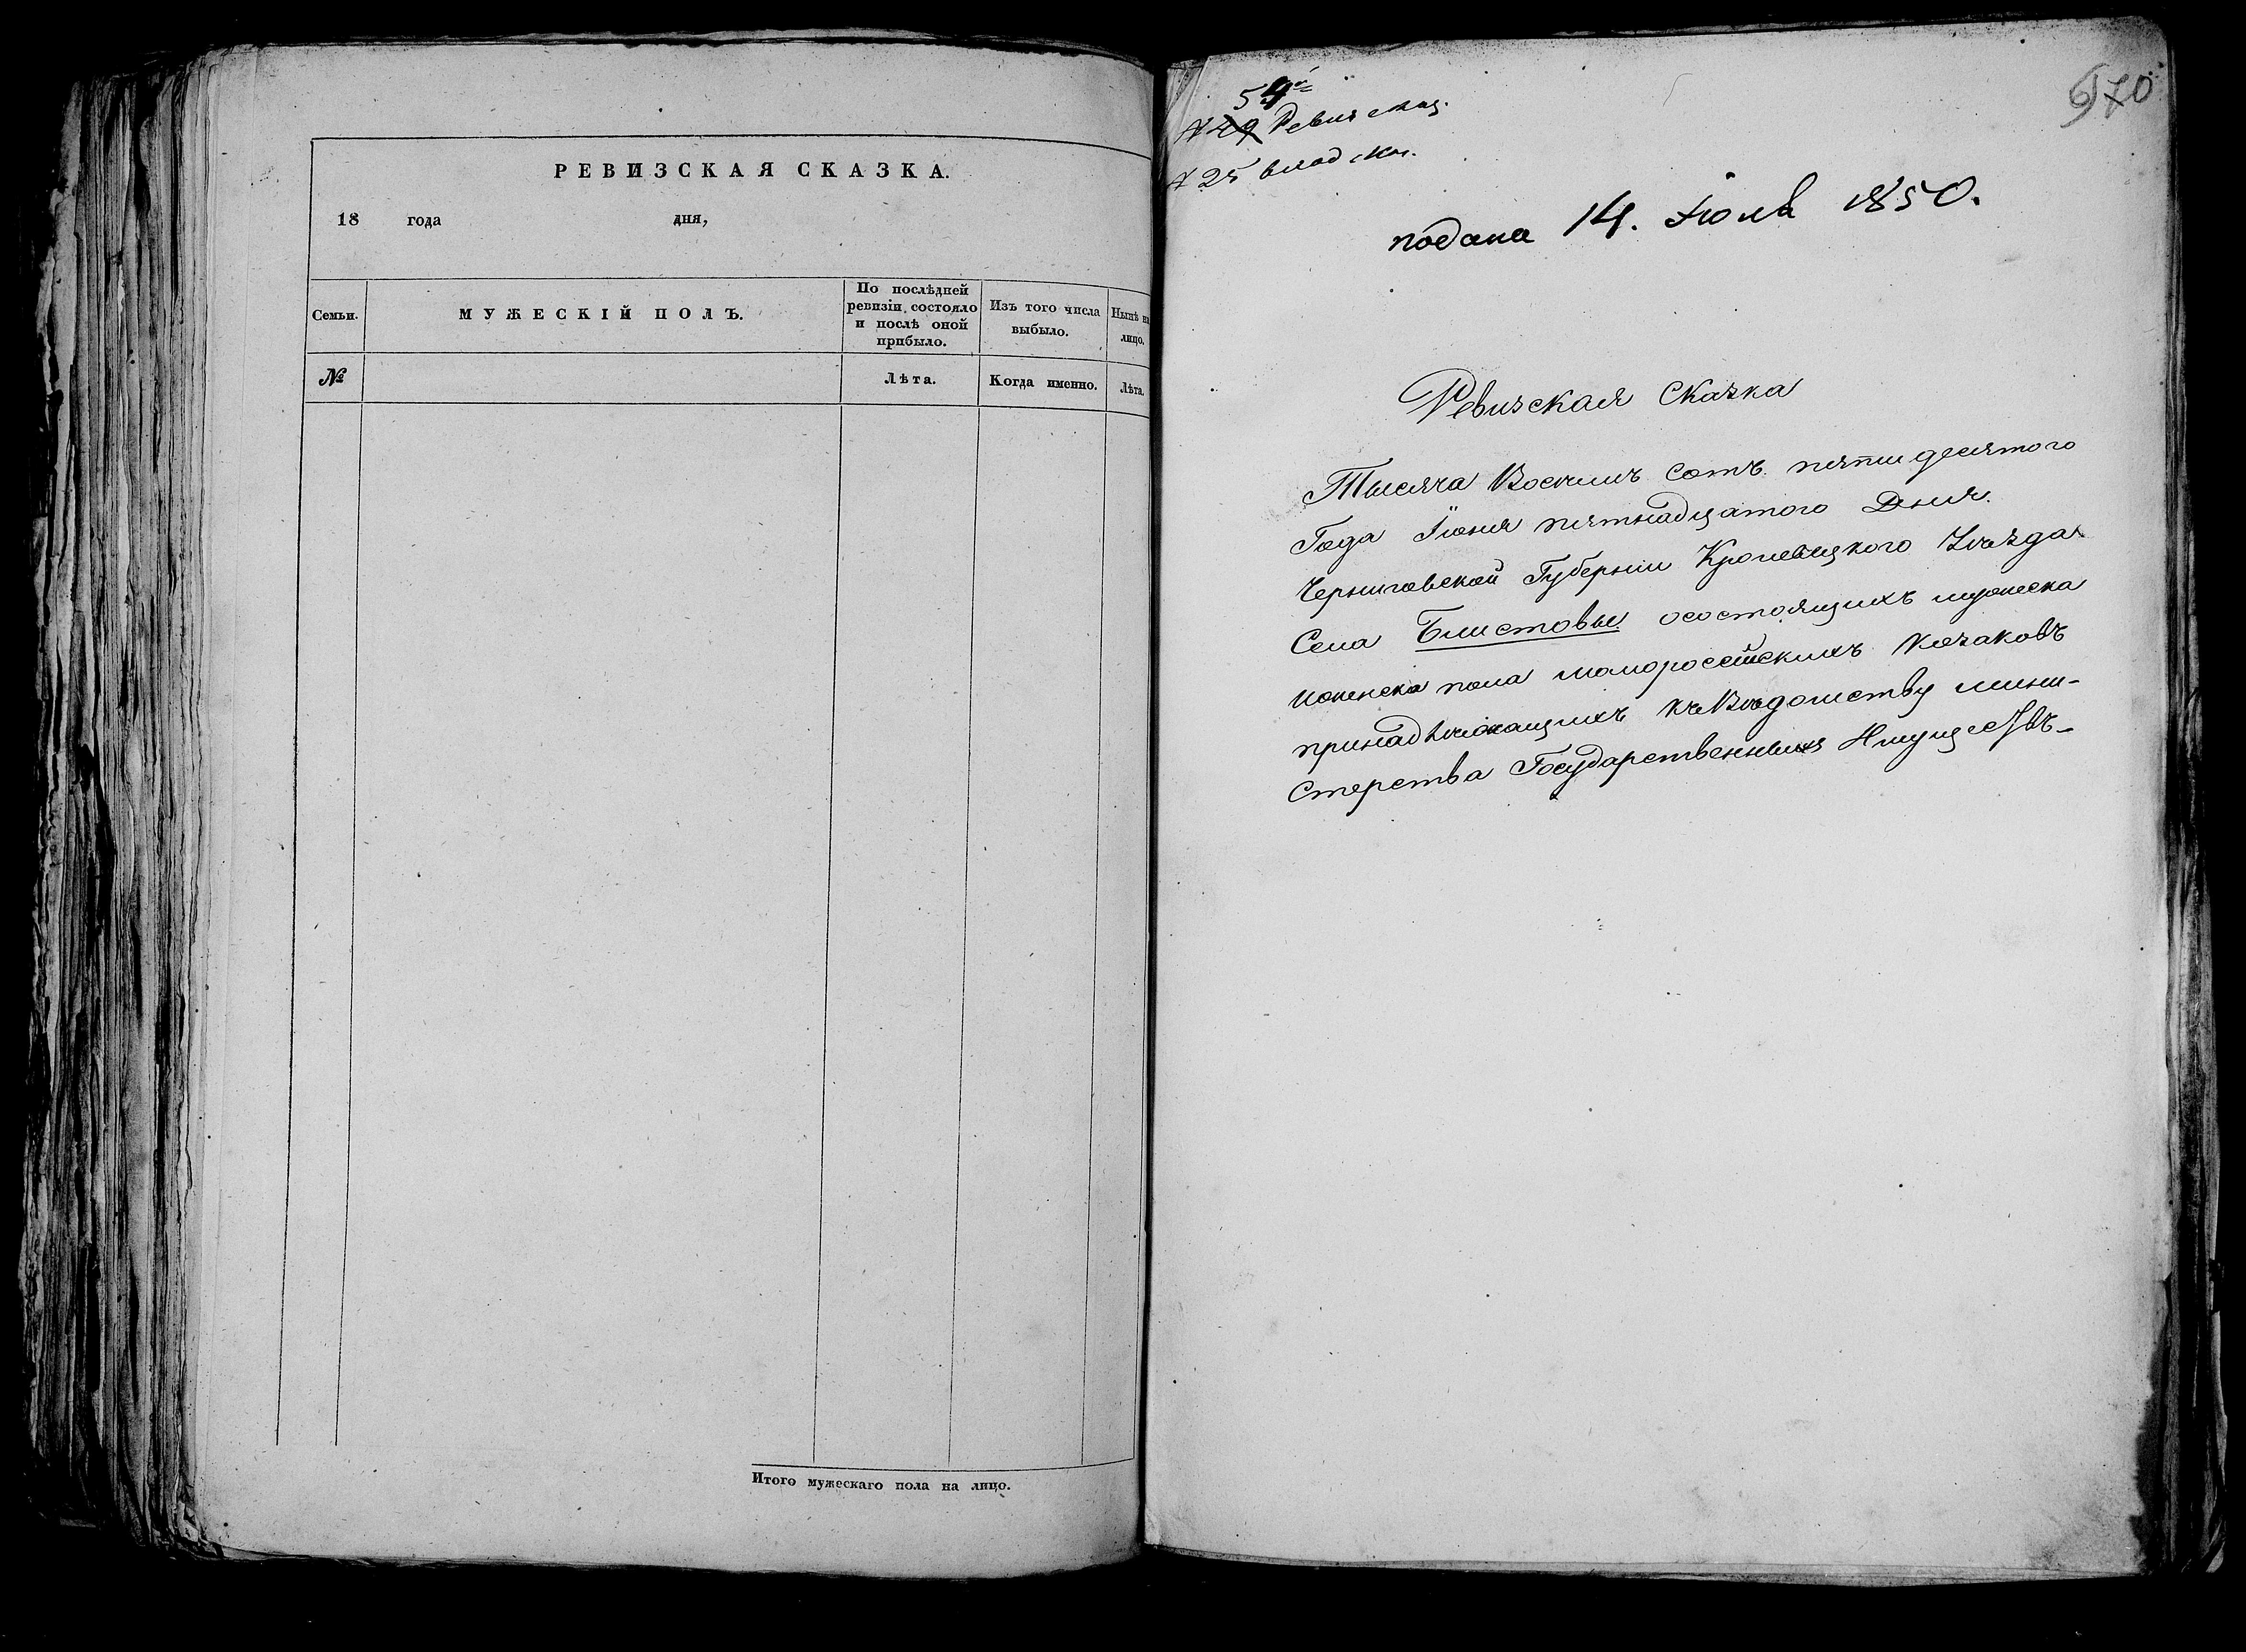 РЕВИЗСКАЯ СКАЗКА.
18 года дня,
Семьи.
МУЖЕСКІЙ ПОЛЪ.
По послѣдней
ревизіи состояло
и послѣ оной
прибыло.
Изъ того числа
выбыло.
Нынѣ на
лицо.
№
Лѣта.
Когда именно.
Лѣта.
Итого мужескаго пола на лицо.
54
N 49 Ревизск
N 25
670
подана 14. Июля 1850.
Ревизская Сказка
Тысяча Восемъ Сотъ пятидесятого
Года Іюня пятнадцатого Дня.
Черниговской Губерніи Кролевецкого Уѣзда
Села Блистовы осостоящихъ мужеска
иженска пола малоросейскихъ козаковъ
принадлежащихъ кѣвѣдомству мини-
стерства Государственныхъ Имуществъ-